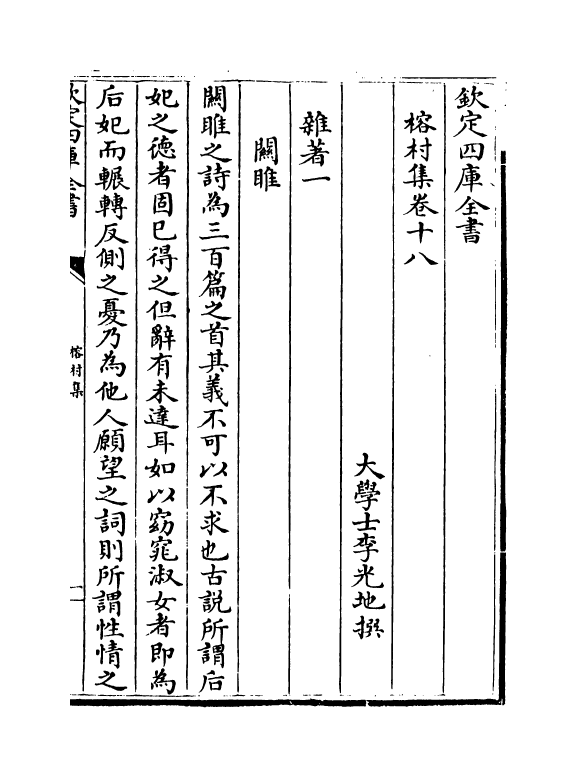 欽定四庫全書
榕村集卷十八
大學士李光地撰
雜著一
關雎
關雎之詩為三百篇之首其義不可以不求也古説所謂后
妃之德者固已得之但辭有未達耳如以窈窕淑女者即為
后妃而輾轉反側之憂乃為他人願望之詞則所謂性情之
欽定四庫全書
榕村集
一